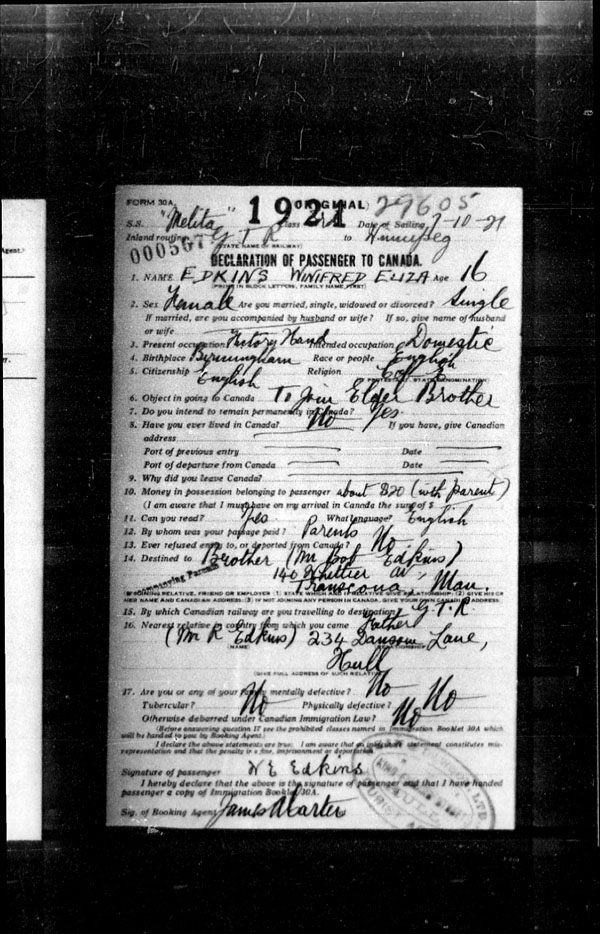 FORM 30A. 1921 (ORIGINAL) 29605
S.S. "Melita" Class Date of Sailing 7-10-21
Inland routing G T R to Winnipeg
(STATE NAME OF RAILWAY)
DECLARATION OF PASSENGER TO CANADA.
1. NAME EDKINS WINIFRED ELIZA Age 16
(PRINT IN BLOCK LETTERS, FAMILY NAME FIRST)
2. Sex Female Are you married, single, widowed or divorced? Single
If married, are you accompanied by husband or wife? If so, give name of husband
or wife
3. Present occupation Factory Hand Intended occupation Domestic
4. Birthplace Byrmingham Race or people English
5. Citizenship English Religion C of E
6. Object in going to Canada To Join Elder Brother
7. Do you intend to remain permanently in Canada? Yes
8. Have you ever lived in Canada? No If you have, give Canadian
address
Port of previous entry Date
Port of departure from Canada Date
9. Why did you leave Canada?
10. Money in possession belonging to passenger about $20 (with parent)
(I am aware that I must have on my arrival in Canada the sum of $
11. Can you read? Yes What language? English
12. By whom was your passage paid? Parents
13. Ever refused entry to, or deported from Canada? No
14. Destined to Brother (Mr Bob Edkins)
Accompanying Parents 140 Whittier av
Transcona Man.
(IF JOINING RELATIVE, FRIEND OR EMPLOYER (1) STATE WHICH AND IF RELATIVE GIVE RELATIONSHIP: (2) GIVE HIS OR
HER NAME AND CANADIAN ADDRESS: (3) IF NOT JOINING ANY PERSON IN CANADA, GIVE YOUR OWN CANADIAN ADDRESS
15. By which Canadian railway are you travelling to destination? G.T.R
16. Nearest relative in country from which you came Father
(Mr R Edkins) 234 Dansom Lane,
(NAME) RELATIONSHIP
Hull
(GIVE FULL ADDRESS OF SUCH RELATIVE)
17. Are you or any of your family mentally defective? No
Tubercular? No Physically defective? No
Otherwise debarred under Canadian Immigration Law? No
(Before answering question 17 see the prohibited classes named in Immigration Booklet 30A which
will be handed to you by Booking Agent.)
I declare the above statements are true. I am aware that an inaccurate statement constitutes mis-
representation and that the penalty is a fine, imprisonment or deportation.
Signature of passenger W E Edkins
I hereby declare that the above is the signature of passenger and that I have handed
passenger a copy of Immigration Booklet 30A.
Sig. of Booking Agent James A Carter